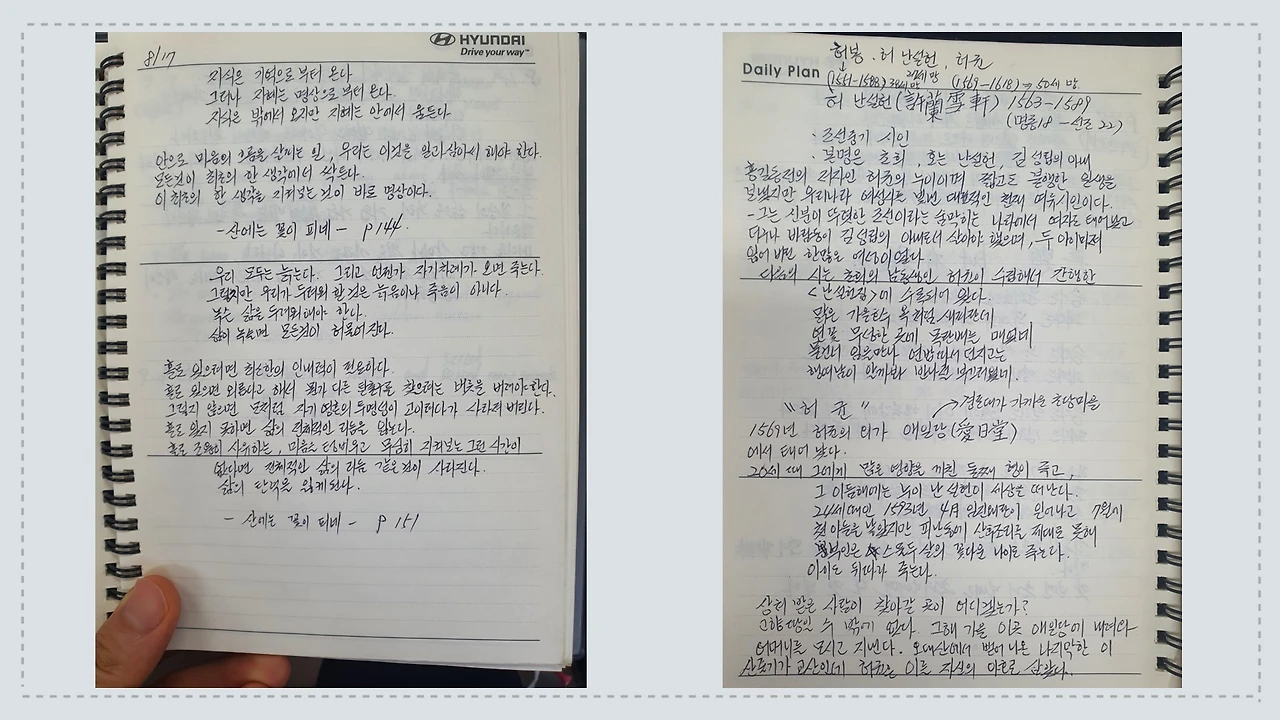 HYUNDAI
Drive your way™
8/17
지식은 기억으로부터 온다
그러나 지혜는 명상으로부터 온다.
지식은 밖에서 오지만 지혜는 안에서 움튼다.
안으로 마음의 흐름을 살피는 일, 우리는 이것을 일과 삼아서 해야 한다.
모든것이 최초의 한 생각에서 싹튼다.
이 최초의 한 생각을 지켜보는 것이 바로 명상이다.
- 산에는 꽃이 피네 - P 144.
우리 모두는 늙는다. 그리고 언젠가 자기차례가 오면 죽는다.
그렇지만 우리가 두려워 할 것은 늙음이나 죽음이 아니다.
녹슨 삶을 두려워해야 한다.
삶이 녹슬면 모든것이 허물어진다.
홀로 있으려면 최소한의 인내력이 필요하다.
홀로 있으면 외롭다고 해서 뭔가 다른 탈출구를 찾으려는 버릇을 버려야한다.
그렇지 않으면 모처럼 자기 영혼의 투명성이 고이려다가 사라져 버린다.
홀로 있지 못하면 삶의 전체적인 리듬을 잃는다.
홀로 조용히 사유하는, 마음을 텅 비우고 무심히 지켜보는 그런 시간이
없다면 전체적인 삶의 리듬 같은것이 사라진다.
삶의 탄력을 잃게 된다.
- 산에는 꽃이 피네 - P 151
허봉. 허 난설헌, 허균
Daily Plan
(1551-1588) 38세 망 (1569-1618) → 50세 망.
허 난설헌 (許蘭雪軒) 1563-1589
(명종18 - 선조 22)
· 조선중기 시인
· 본명은 초희, 호는 난설헌, 김성립의 아내
홍길동전의 저자인 허균의 누이이며 짧고도 불행한 일생을
보냈지만 우리나라 여성사를 빛낸 대표적인 천재 여류시인이다.
- 그는 신분이 뚜렷한 조선이라는 숨막히는 나라에서 여자로 태어났고
더구나 바람둥이 김성립의 아내로서 살아야 했으며, 두 아이마저
잃어 버린 한많은 여성이였다.
시는 초희의 남동생인 허균이 수집해서 간행한
<난설헌집>에 수록되어 있다.
맑은 가을호수 옥처럼 새파란데
연꽃 무성한 곳에 목란배를 매었네
물건너 임을만나 연밥따서 던지고는
행여남이 알까봐 반나절 부끄러웠네.
"허 균"
1569년 허균의 외가 애일당(愛日堂)
에서 태어 났다.
20세 때 그에게 많은 영향을 끼친 둘째 형이 죽고,
그 이듬해에는 누이 난설헌이 세상을 떠난다.
24세때인 1593년 4月 임진왜란이 일어나고 7월에
첫 아들을 낳았지만 피난통에 산후조리를 제대로 못해
부인은 스물두살의 꽃다운 나이로 죽는다.
아이도 뒤따라 죽는다.
상처 받은 사람이 찾아갈 곳이 어디겠는가?
고향땅일 수 밖에 없다. 그해 가을 이곳 애일당에 내려와
어머니를 모시고 지낸다. 오대산에서 뻗어 나온 나지막한 이
산줄기가 교산인데 허균은 이를 자신의 아호로 삼았다.